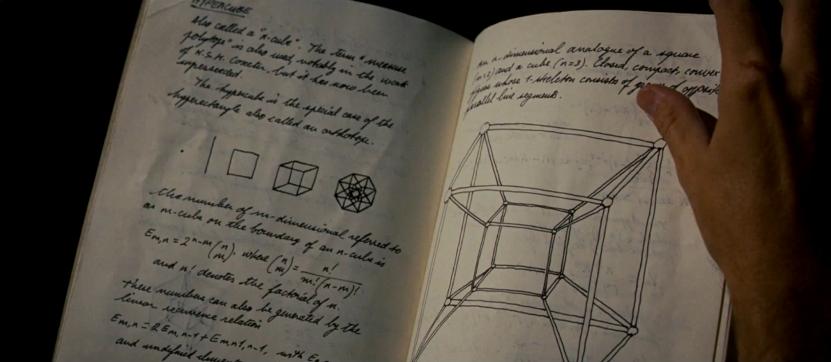 HYPERCUBE
Also called a "n-cube". The term "measure
polytope" is also used, notably in the work
of H.S.M. Coxeter, but it has now been
superseded.
The hypercube is the special case of the
hyperrectangle also called an orthotope.
The number of m-dimensional referred to
an m-cube on the boundary of an n-cube is
Em,n = 2^n-m (n m), where (n m) = n! / m!(n-m)!
and n! denotes the factorial of n.
These numbers can also be generated by the
linear recurrence relation
Em,n = 2Em,n-1 + Em-1,n-1, with E
and undefined
An n-dimensional analogue of a square
(n=2) and a cube (n=3). Closed, compact, convex
whose 1-skeleton consists of of opposite
parallel line segments.